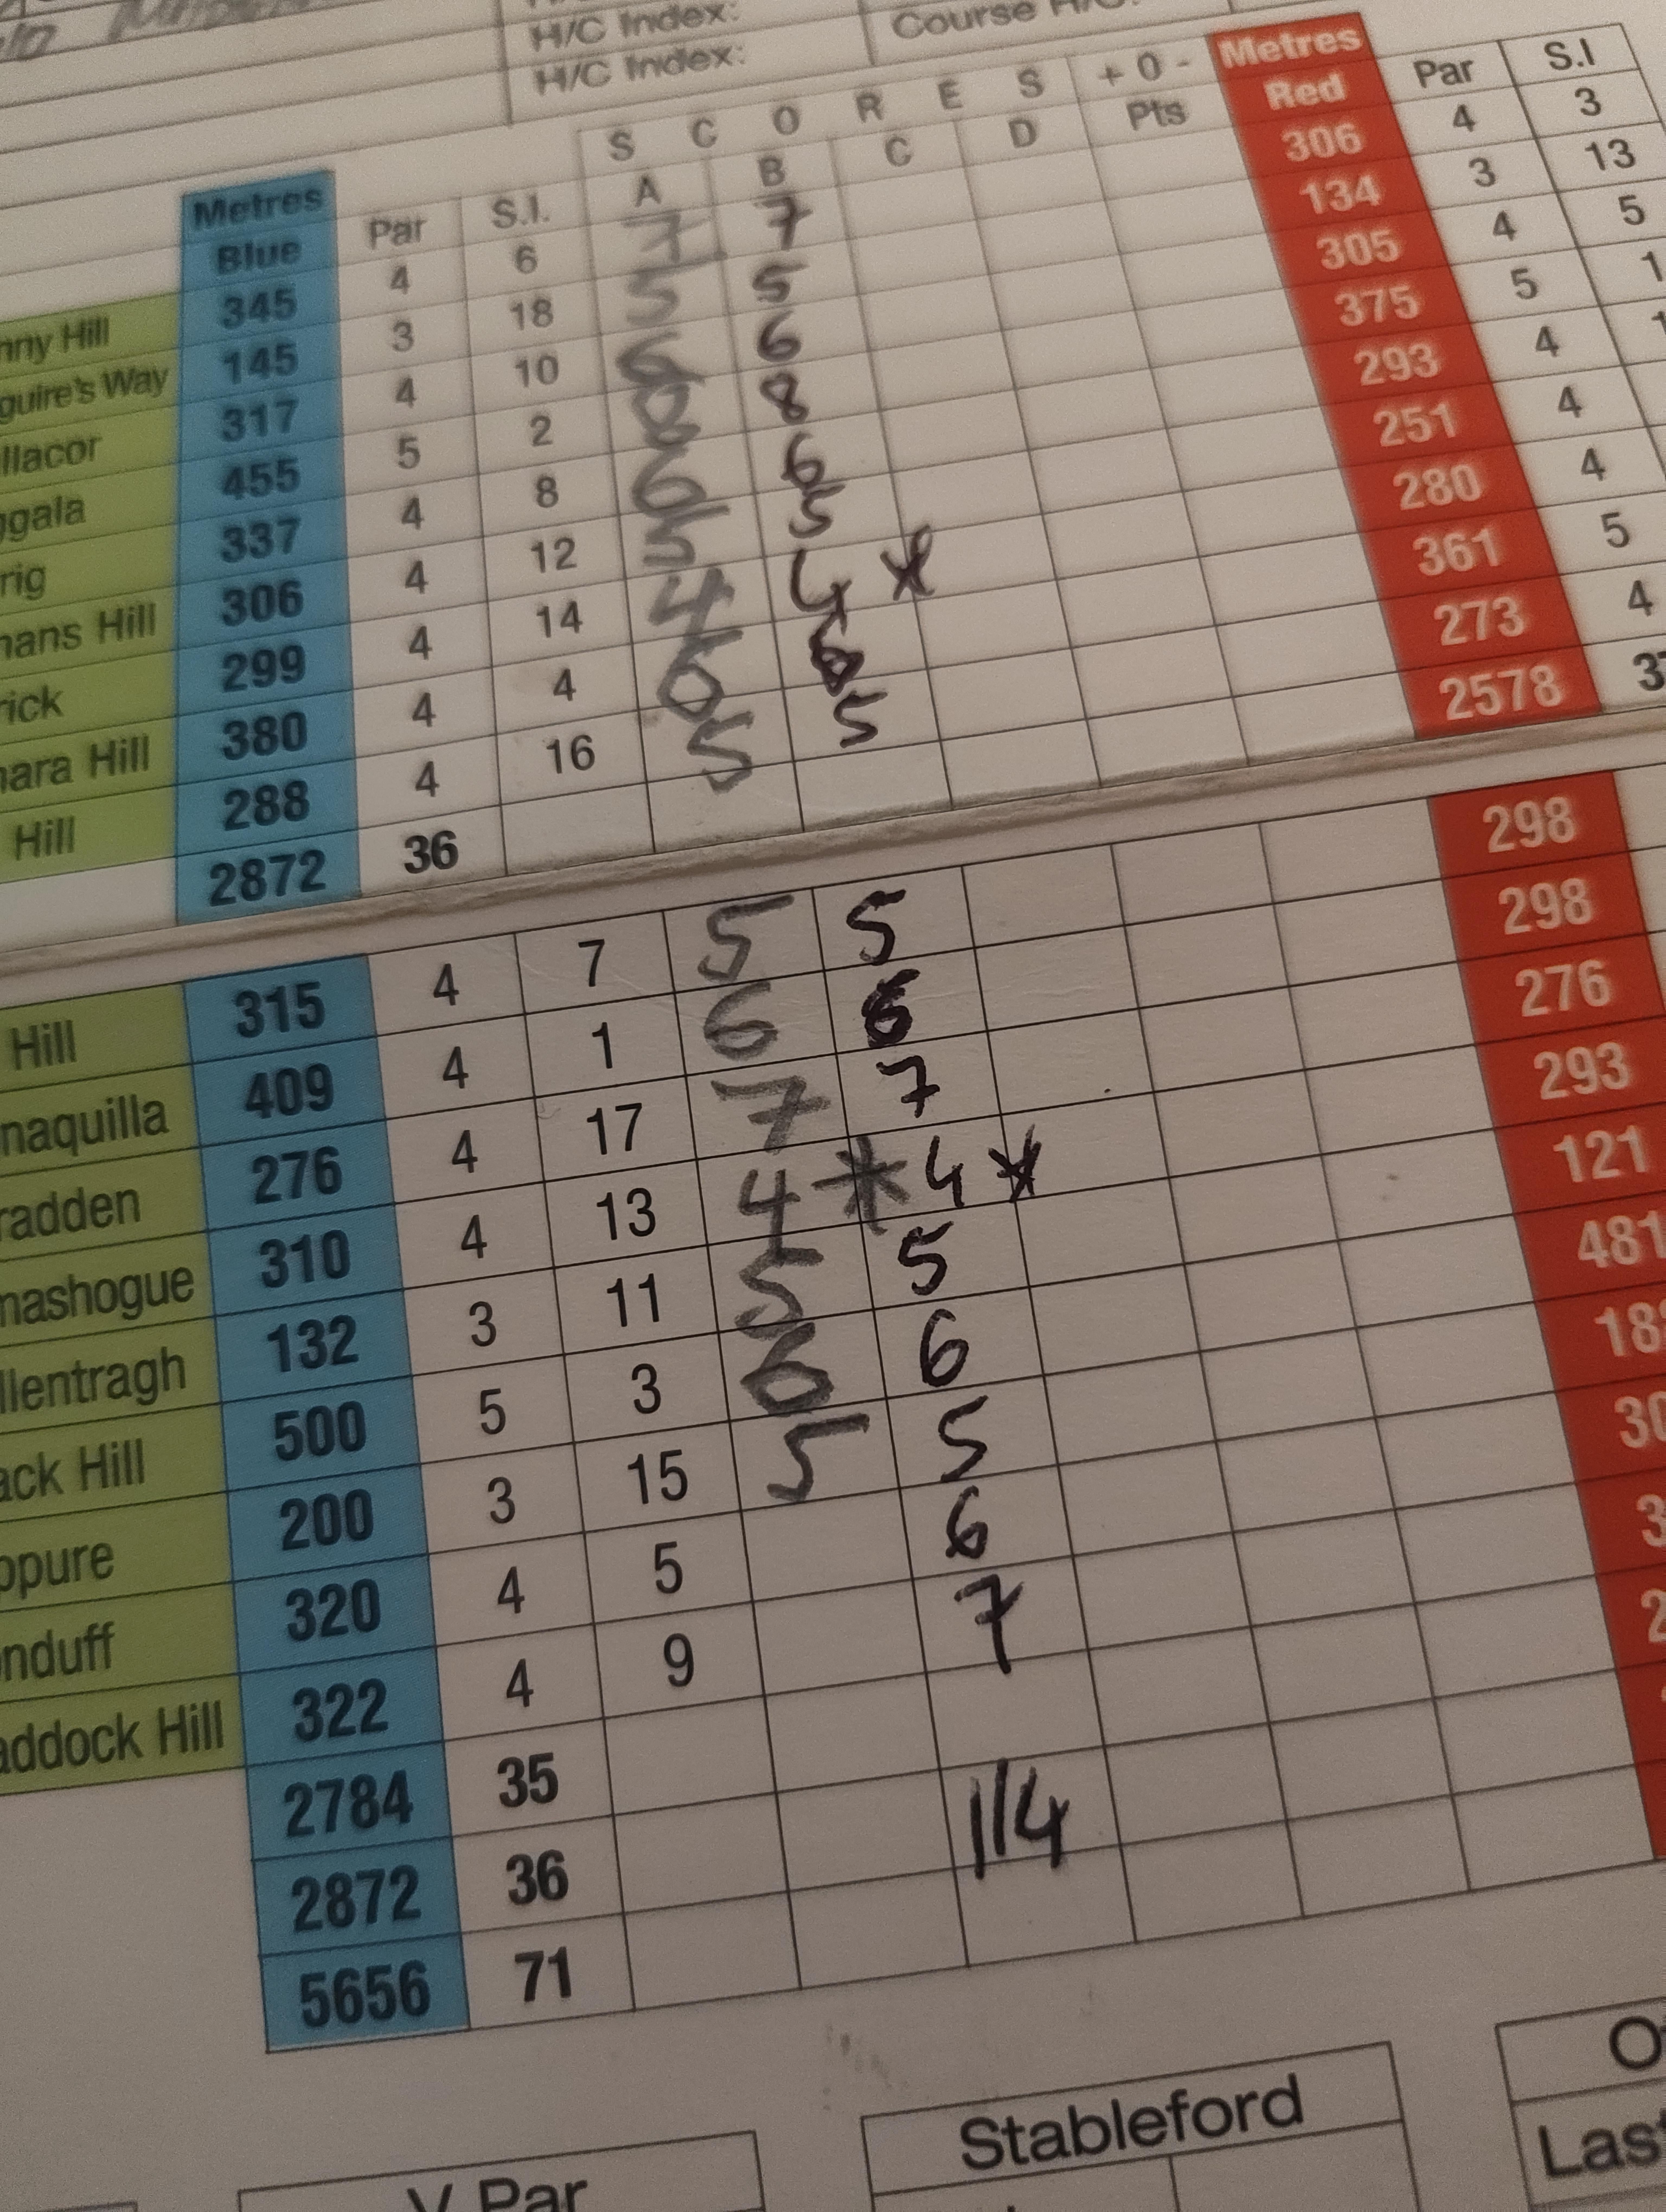 H/C Index: Course H/C:
H/C Index:
S C O R E S + 0 - Metres
Metres Par S.I. A B C D Pts Red Par S.I
Blue 4 6 7 7 306 4 3
nny Hill 345 3 18 5 5 134 3 13
guire's Way 145 4 10 6 6 305 4 5
llacor 317 5 2 8 8 375 5 1
ggala 455 4 8 6 6 293 4 1
rig 337 4 12 5 5 251 4
nans Hill 306 4 14 4 4 * 280 4
rick 299 4 4 6 6 361 5
nara Hill 380 4 16 5 5 273 4
Hill 288 36 2578 37
2872
Hill 315 4 7 5 5 298
naquilla 409 4 1 6 6 298
radden 276 4 17 7 7 276
nashogue 310 4 13 4 * 4 * 293
llentragh 132 3 11 5 5 121
ack Hill 500 5 3 6 6 481
ppure 200 3 15 5 5 18
nduff 320 4 5 6 30
addock Hill 322 4 9 7 3
2784 35 2
2872 36 114
5656 71
V Par Stableford
Last